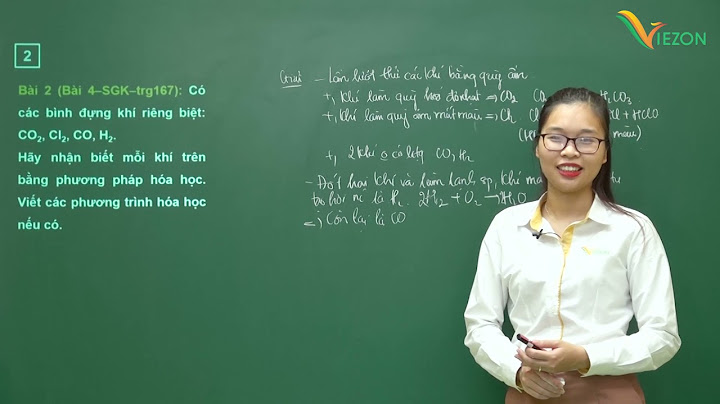 VIEZON
2
Bài 2 (Bài 4–SGK–trg167): Có
các bình đựng khí riêng biệt:
CO₂, Cl₂, CO, H₂.
Hãy nhận biết mỗi khí trên
bằng phương pháp hóa học.
Viết các phương trình hóa học
nếu có.
– Lần lượt thử các khí bằng quỳ ẩm
+, Khí làm quỳ hơi đỏ nhạt => CO₂ CO₂ H₂CO₃
+, Khí làm quỳ ẩm mất màu => Cl₂ + HClO
màu)
+, 2 khí CO, H₂
– Đốt hai khí và làm lạnh sp, khí
tạo hơi nc là H₂. 2H₂ + O₂ → 2H₂O
=> Còn lại là CO
VIEZON